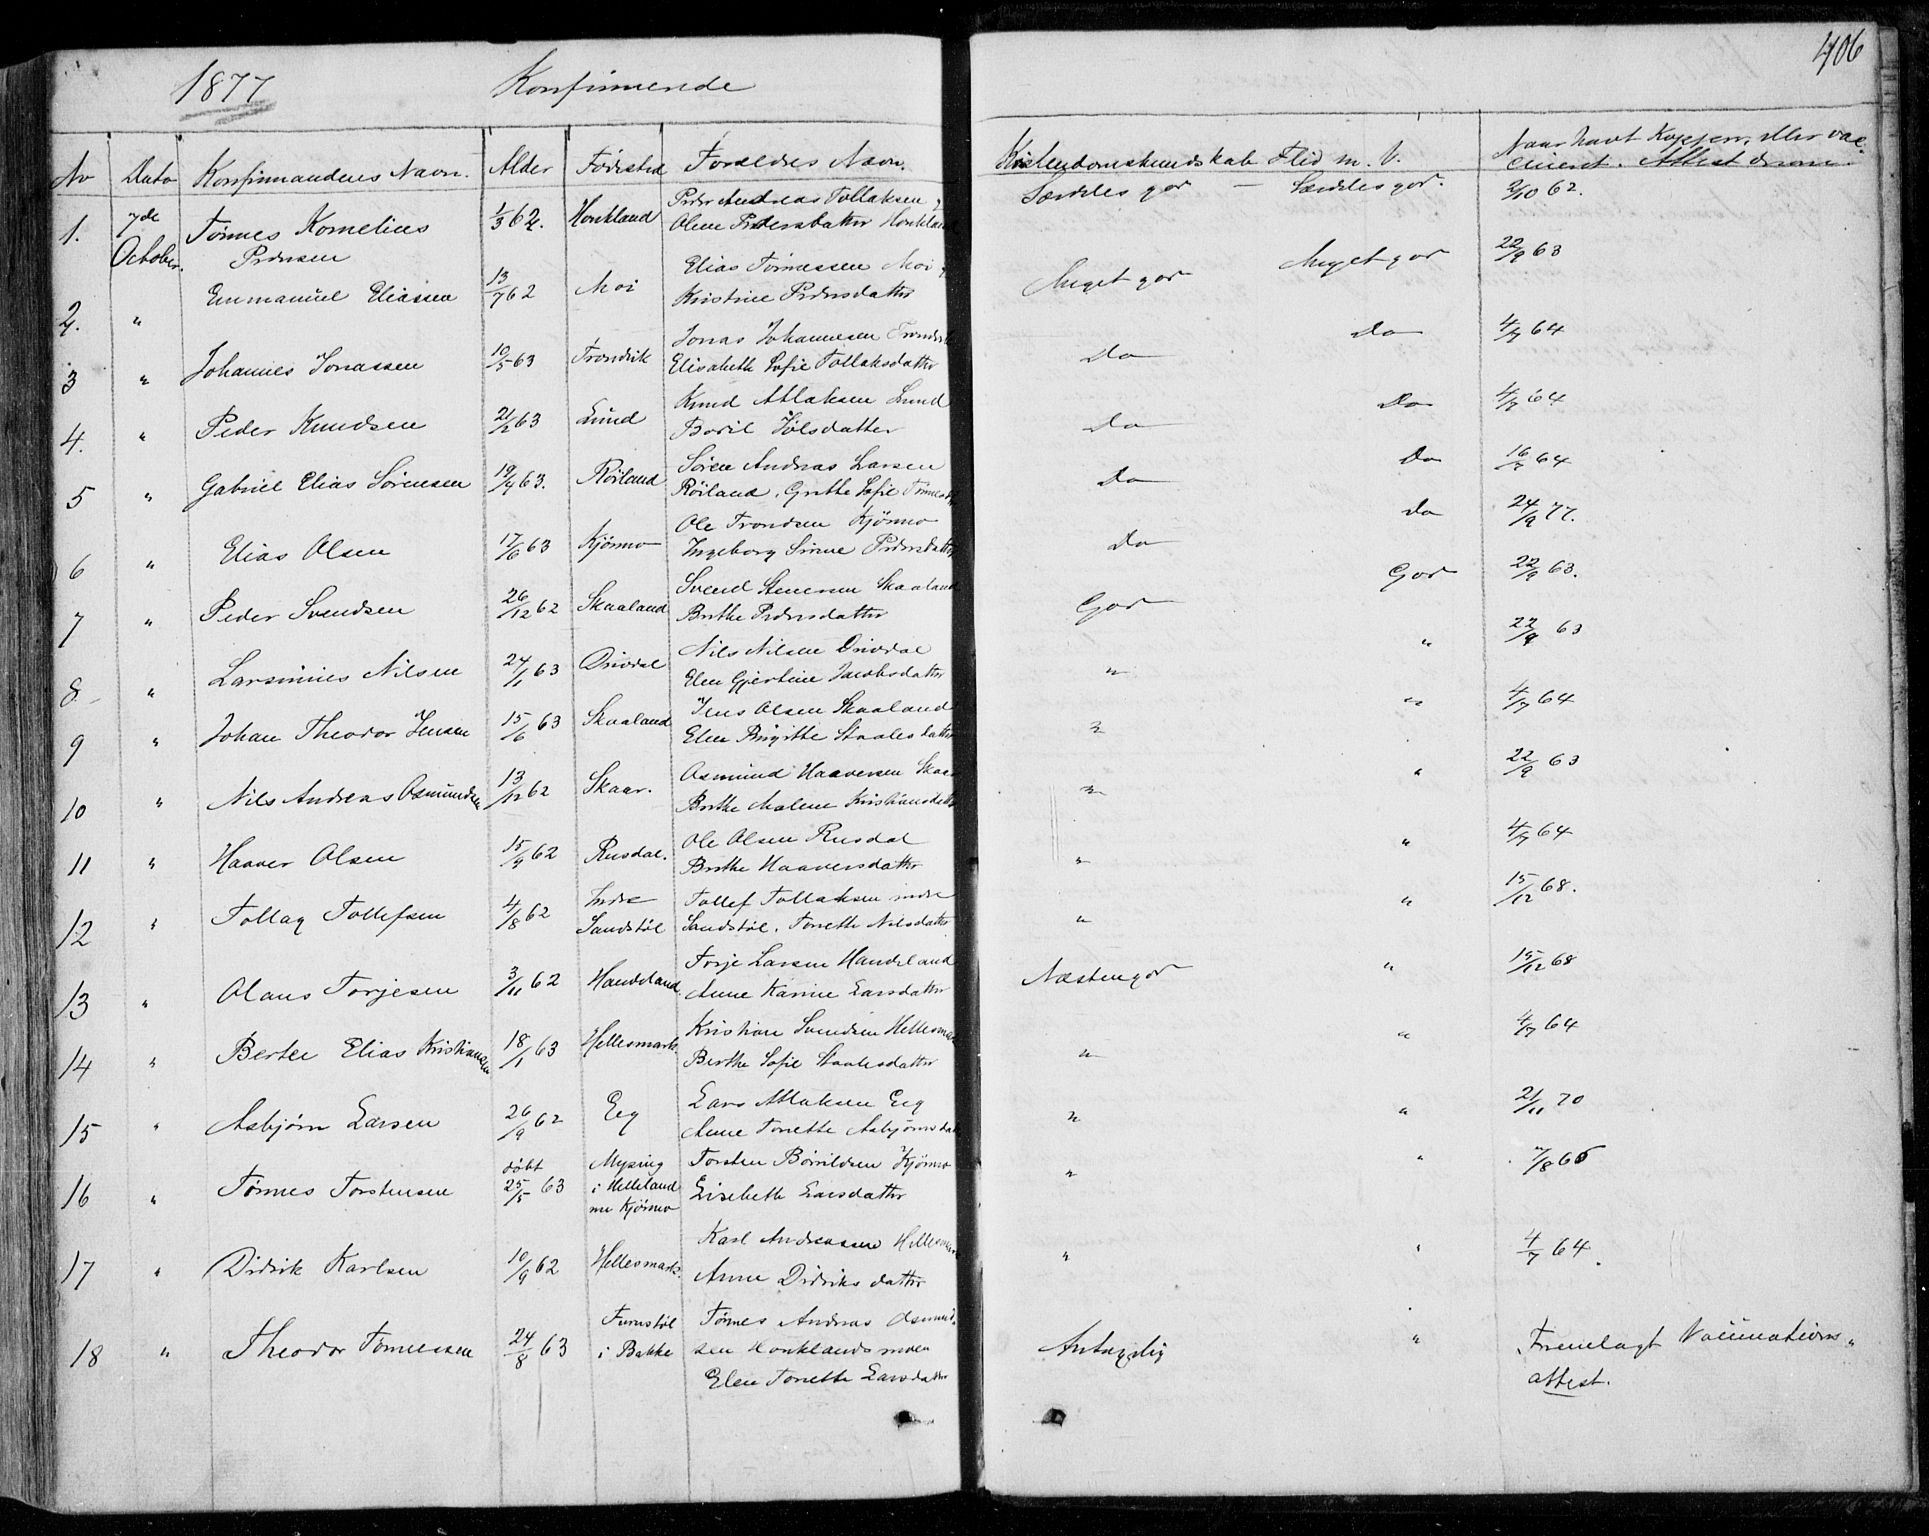 1877 Konfirmerede 406
No Dato Konfirmandens Navn. Alder Födested Foreldres Navn. Kristendomskundskab Flid m. V. Naar havt Kopper, eller vac-
cineret. Attest derom.
1. 7de October. Tönnes Kornelius Pedersen 1/3 62. Honkland Peder Andreas Tollaksen og
Olene Pedersdatter Honkland Særdeles god — Særdeles god. 2/10 62.
2. " Emmanuel Eliassen 13/7 62 Moi Elias Tönnessen Moi og
Kristine Pedersdatter Meget god Meget god 22/9 63
3 " Johannes Jonassen 10/5 63 Trondvik Jonas Johannesen Trondvik
Elisabeth Sofie Tollaksdatter Do Do 4/7 64
4. " Peder Knudsen 21/2 63 Lund Knud Atlaksen Lund
Boril Jölsdatter Do Do 4/7 64
5 " Gabriel Elias Sörensen 19/4 63. Röiland Sören Andreas Larsen
Röiland. Grethe Sofie Tönnesdtr Do Do 16/7 64
6 " Elias Olsen 17/6 63 Kjörmo Ole Trondsen Kjörmo
Ingeborg Sirine Pedersdatter Do Do 24/9 77.
7 " Peder Svendsen 26/12 62 Skaaland Svend Stenersen Skaaland
Berthe Pedersdatter God God 22/9 63.
8 " Larsinius Nilsen 24/1 63 Drivdal Nils Nilsen Drivdal
Elen Gjertine Jacobsdatter " " 22/9 63
9 " Johan Theodor Jensen 15/6 63 Skaaland Jens Olsen Skaaland
Elen Birgitte Staalesdatter " " 4/7 64
10 " Nils Andreas Osmundsen 13/12 62 Skaar. Osmund Haaversen Skaar
Berthe Malene Kristiansdatter " " 22/9 63
11 " Haaver Olsen 15/9 62 Rusdal. Ole Olsen Rusdal
Berthe Haaversdatter " " 4/7 64
12 " Tollag Tollefsen 4/8 62 Indre
Sandstöl Tollef Tollaksen indre
Sandstöl. Tonette Nilsdatter " " 15/12 68.
13 " Olaus Torjesen 3/11 62 Handeland. Torje Larsen Handeland
Anne Karine Larsdatter Næsten god " 15/12 68
14 " Bertel Elias Kristiansen 18/1 63 Hellesmark. Kristian Svendsen Hellesmark
Berthe Sofie Staalesdatter " " 4/7 64
15 " Asbjörn Larsen 26/9 62 Eeg Lars Atlaksen Eeg
Anne Tonette Asbjörnsdatter " " 2/11 70
16 " Tönnes Torstensen döbt
25/5 63 Mysing
i Helleland
nu Kjörmo Torsten Börrildsen Kjörmo
Lisebeth Larsdatter " " 7/8 66
17 " Didrik Karlsen 10/9 62 Hellesmark. Karl Andreassen Hellesmark
Anne Didriksdatter " " 4/7 64.
18 " Theodor Tönnessen 24/8 63 Furustöl
i Bakke Tönnes Andreas Osmund-
sen Honklandsmoen
Elen Tonette Larsdatter Antagelig " Fremlagt Vaccinations-
attest.